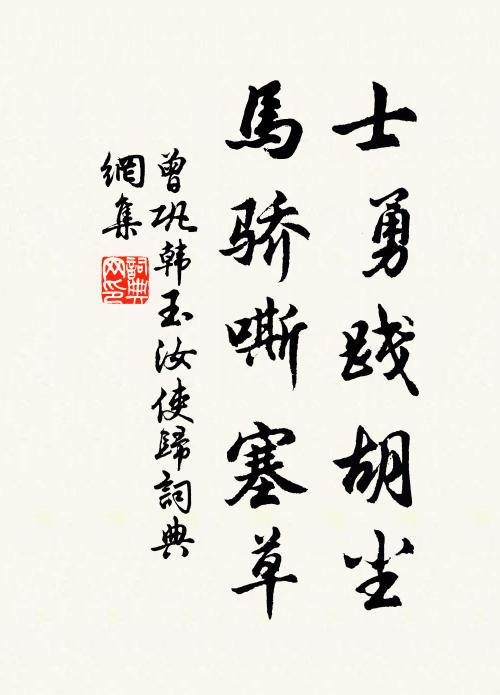 士勇践胡尘
馬骄嘶塞草
曾巩韩玉汝使歸詞典
網集
詞典
网印